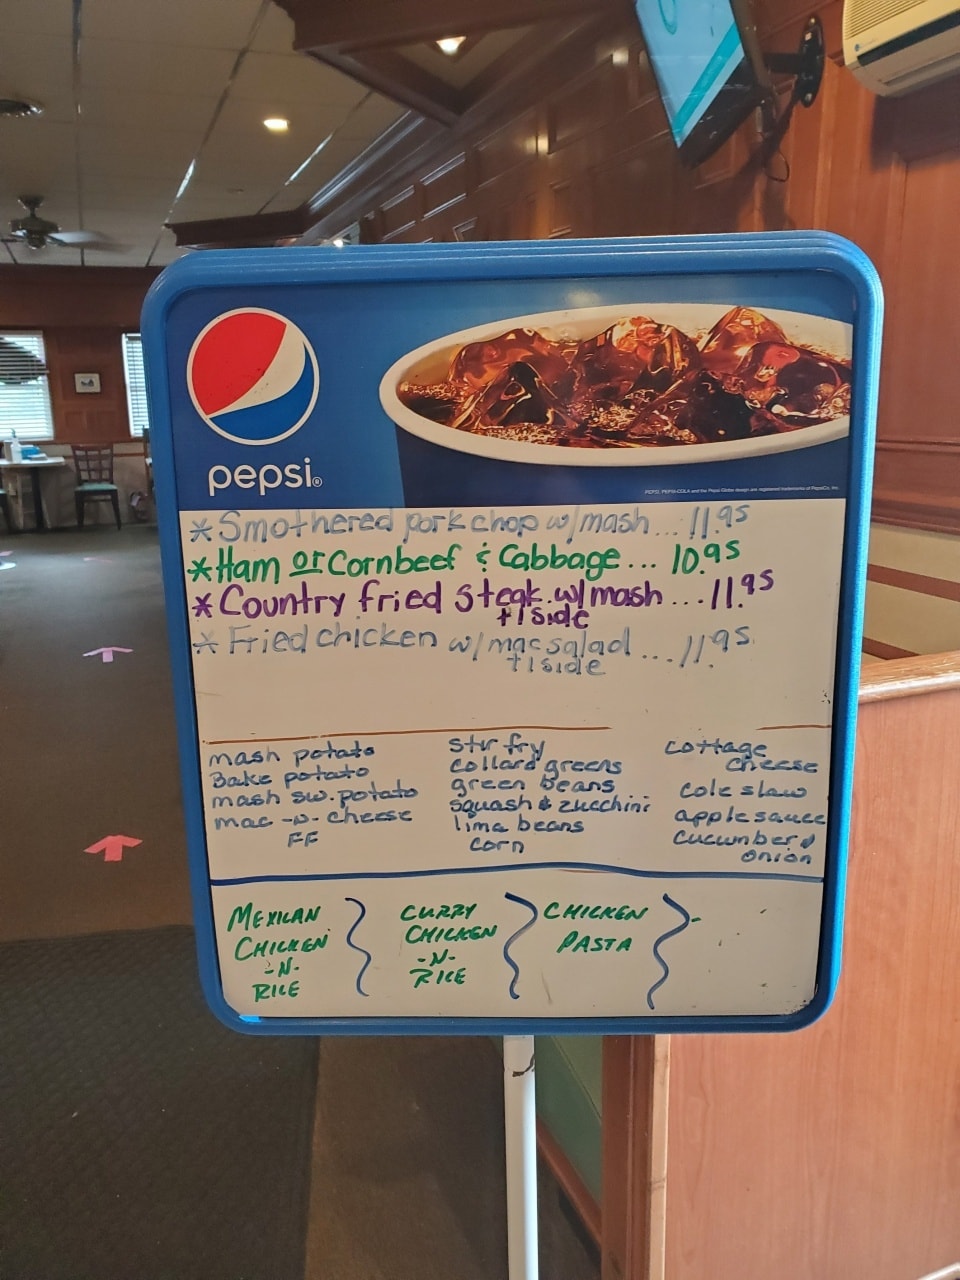 pepsi®
PEPSI, PEPSI-COLA and the Pepsi Globe design are registered trademarks of PepsiCo, Inc.
* Smothered pork chop w/mash...11.95
* Ham or Cornbeef & Cabbage... 10.95
* Country fried steak w/mash ...11.95
+1 side
* Fried chicken w/ mac salad ...11.95
+1 side
mash potato
Bake potato
mash sw. potato
mac -n- cheese
FF
stir fry
collard greens
green beans
squash & zucchini
lima beans
corn
cottage
cheese
cole slaw
applesauce
cucumber &
onion
MEXICAN
CHICKEN
-N-
RICE
CURRY
CHICKEN
-N-
RICE
CHICKEN
PASTA